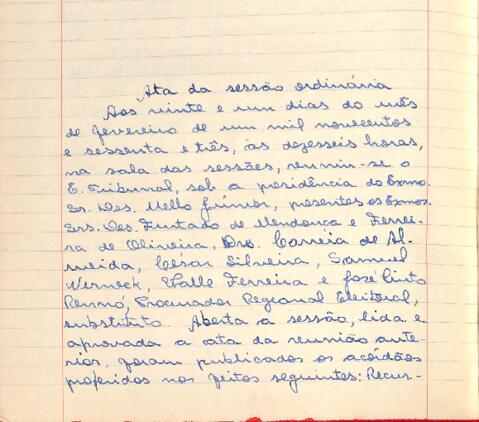 Ata da sessão ordinária
Aos vinte e um dias do mês
de fevereiro de um mil novecentos
e sessenta e três, às dezesseis horas,
na sala das sessões, reuniu-se o
E. Tribunal, sob a presidência do Exmo.
Sr. Des. Mello Júnior, presentes os Exmos.
Srs. Des. Furtado de Mendonça e Ferrei-
ra de Oliveira, Drs. Corrêia de Al-
meida, César Silveira, Samuel
Werneck, Valle Ferreira e José Pinto
Rennó, Procurador Regional Eleitoral,
substituto. Aberta a sessão, lida e
aprovada a ata da reunião ante-
rior, foram publicados os acórdãos
proferidos nos feitos seguintes: Recur-